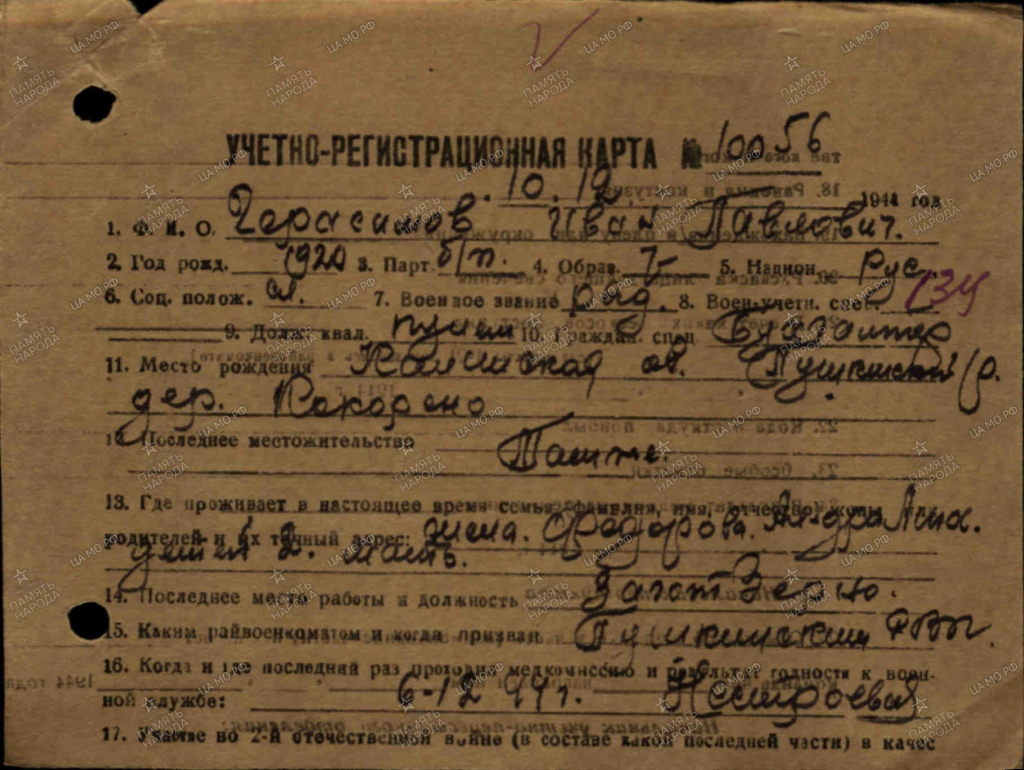 УЧЕТНО-РЕГИСТРАЦИОННАЯ КАРТА № 10056
10. 12 1944 год
1. Ф. И. О. Герасимов Иван Павлович.
2. Год рожд. 1920 3. Парт. б/п. 4. Образ. 7- 5. Национ. Рус
6. Соц. полож. сл. 7. Военное звание ряд. 8. Воен-учетн. спец. 134
9. Долж. квал. 10. Граждан. спец. Бухгалтер
11. Место рождения Калининская об. Пушкинский р.
дер. Кокорено
12. Последнее местожительство Там же.
13. Где проживает в настоящее время семья, фамилия, имя, отчество жены,
родителей и их точный адрес: жена. Федорова.
детей 2. мать.
14. Последнее место работы и должность Загот Зерно.
15. Каким райвоенкоматом и когда призван Пушкинским РВК
16. Когда и где последний раз проходил медкомиссию и результат годности к воен-
ной службе: 6-12 44 г.
17. Участие во 2-й отечественной войне (в составе какой последней части) в качес